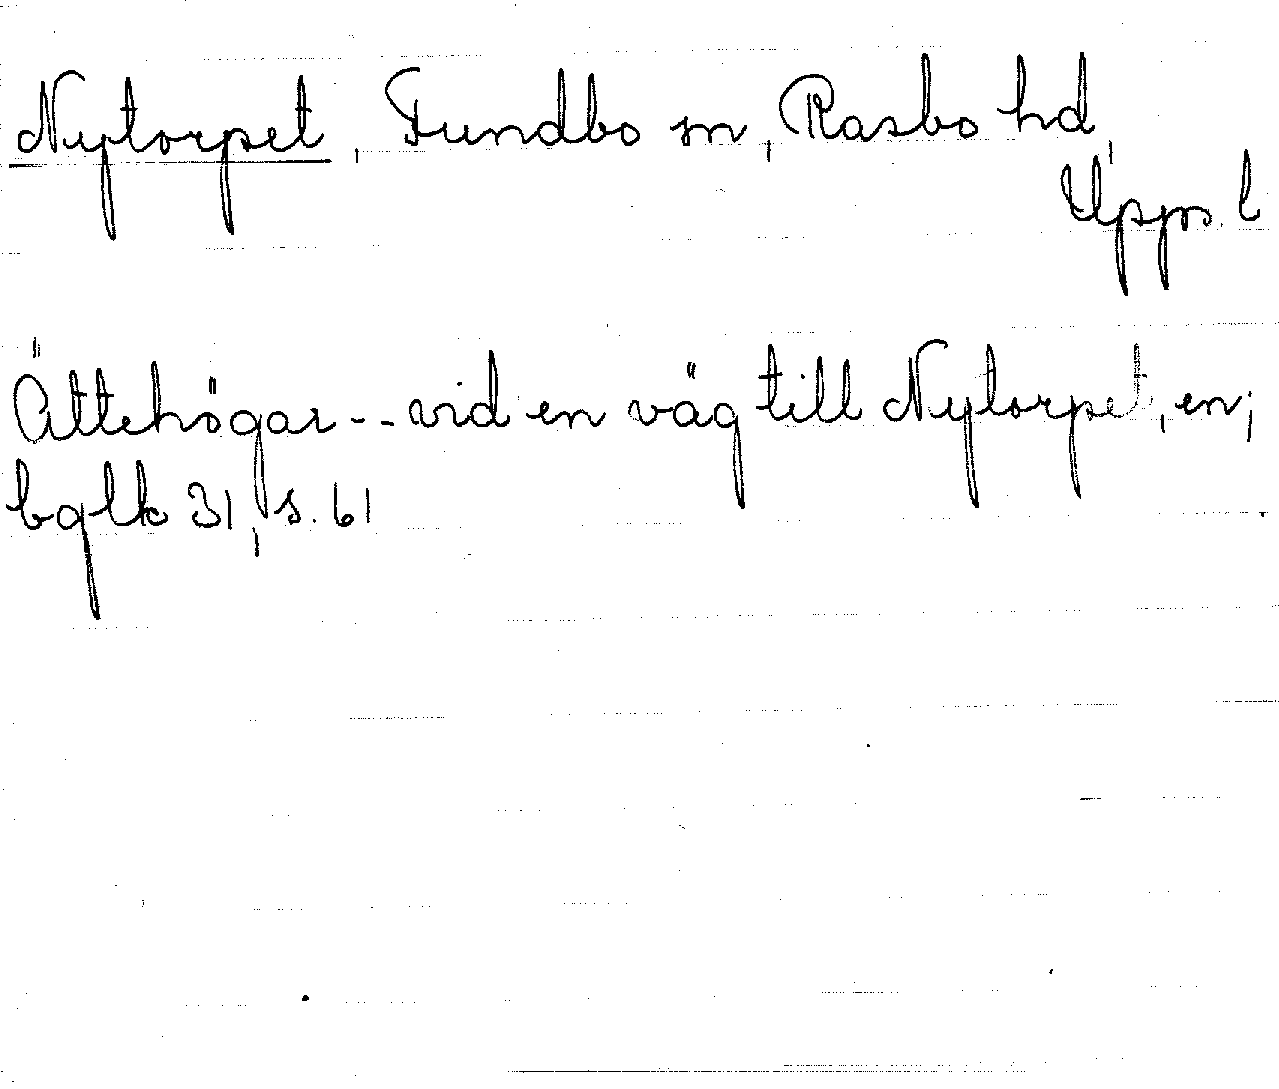 Nytorpet, Fundbo sn, Rasbo hd,
Upps. l
Ättehögar -- vid en väg till Nytorpet, en;
bglk 31, s. 61